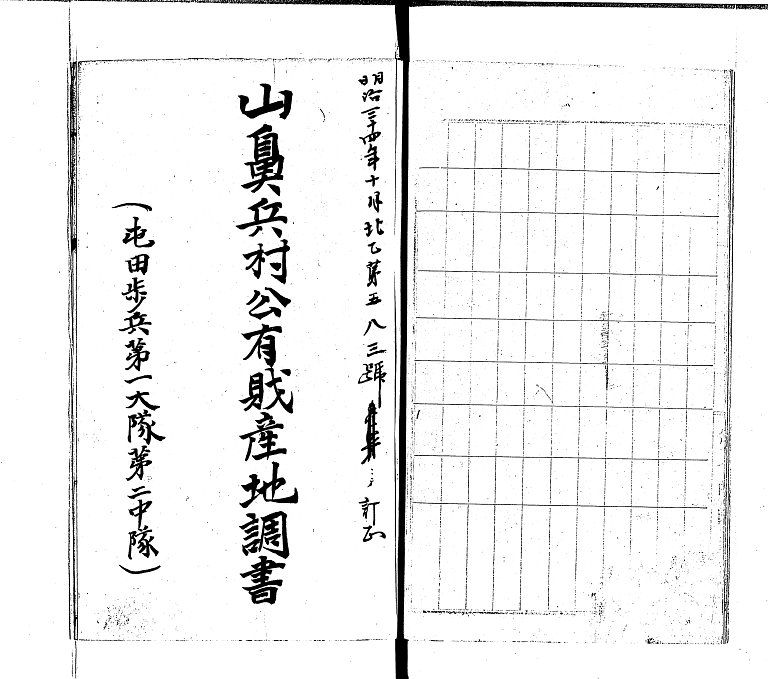 明治三十四年十月北乙第五八三號 訂正
山鼻兵村公有財産地調書
(屯田歩兵第一大隊第二中隊)